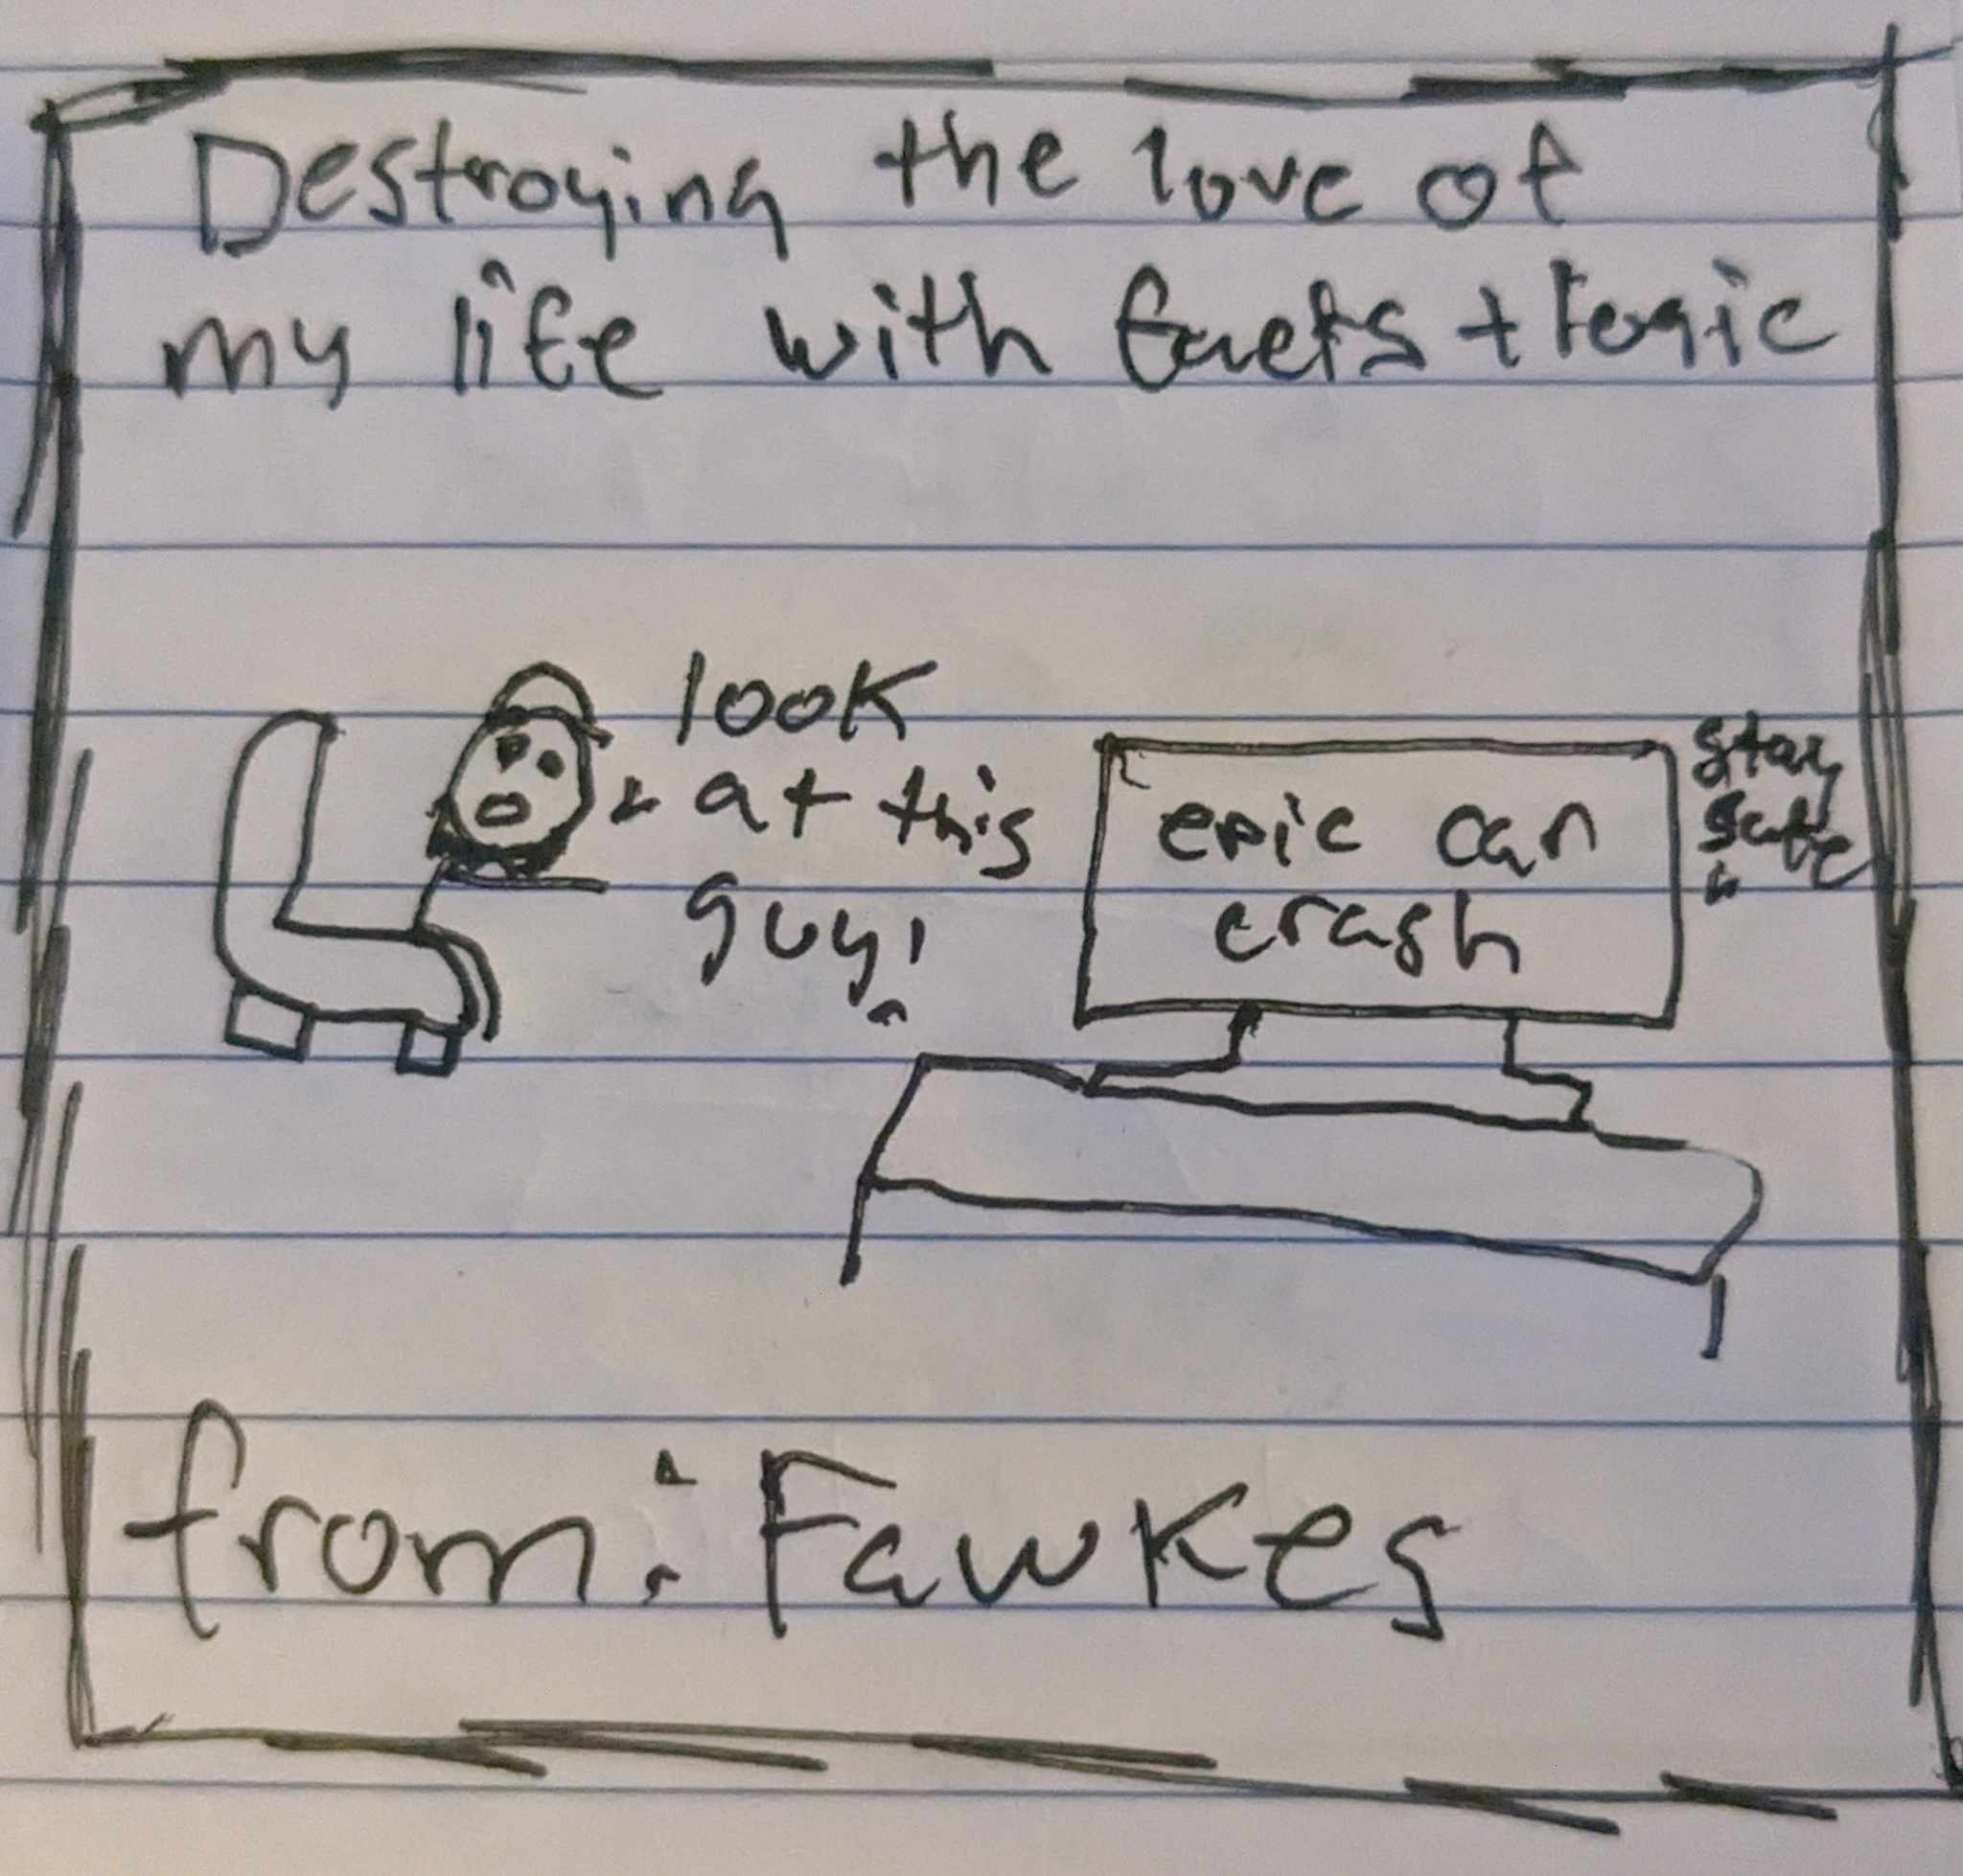 Destroying the love of
my life with facts + logic
look
at this
guy!
epic car
crash
stay
safe
from: Fawkes